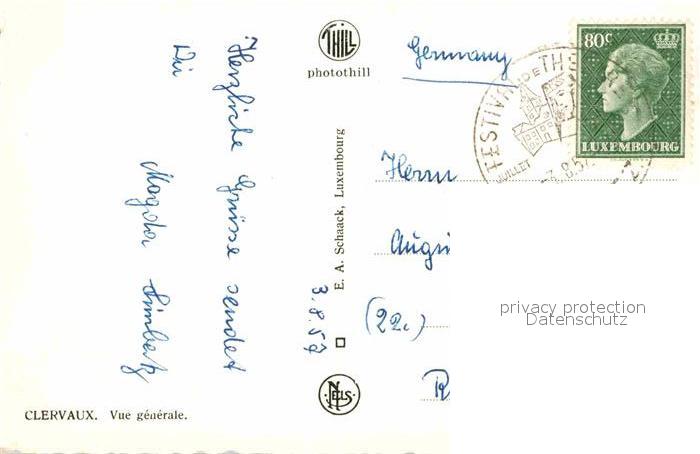 Herzliche Grüsse sendet
Dir
Magda
3.8.57
THILL
photothill
E. A. Schaack, Luxembourg
NELS
CLERVAUX. Vue générale.
Germany
Herrn
(22c)
R
80c
LUXEMBOURG
FESTIVAL DE TH
JUILLET
-3.8.57
privacy protection
Datenschutz